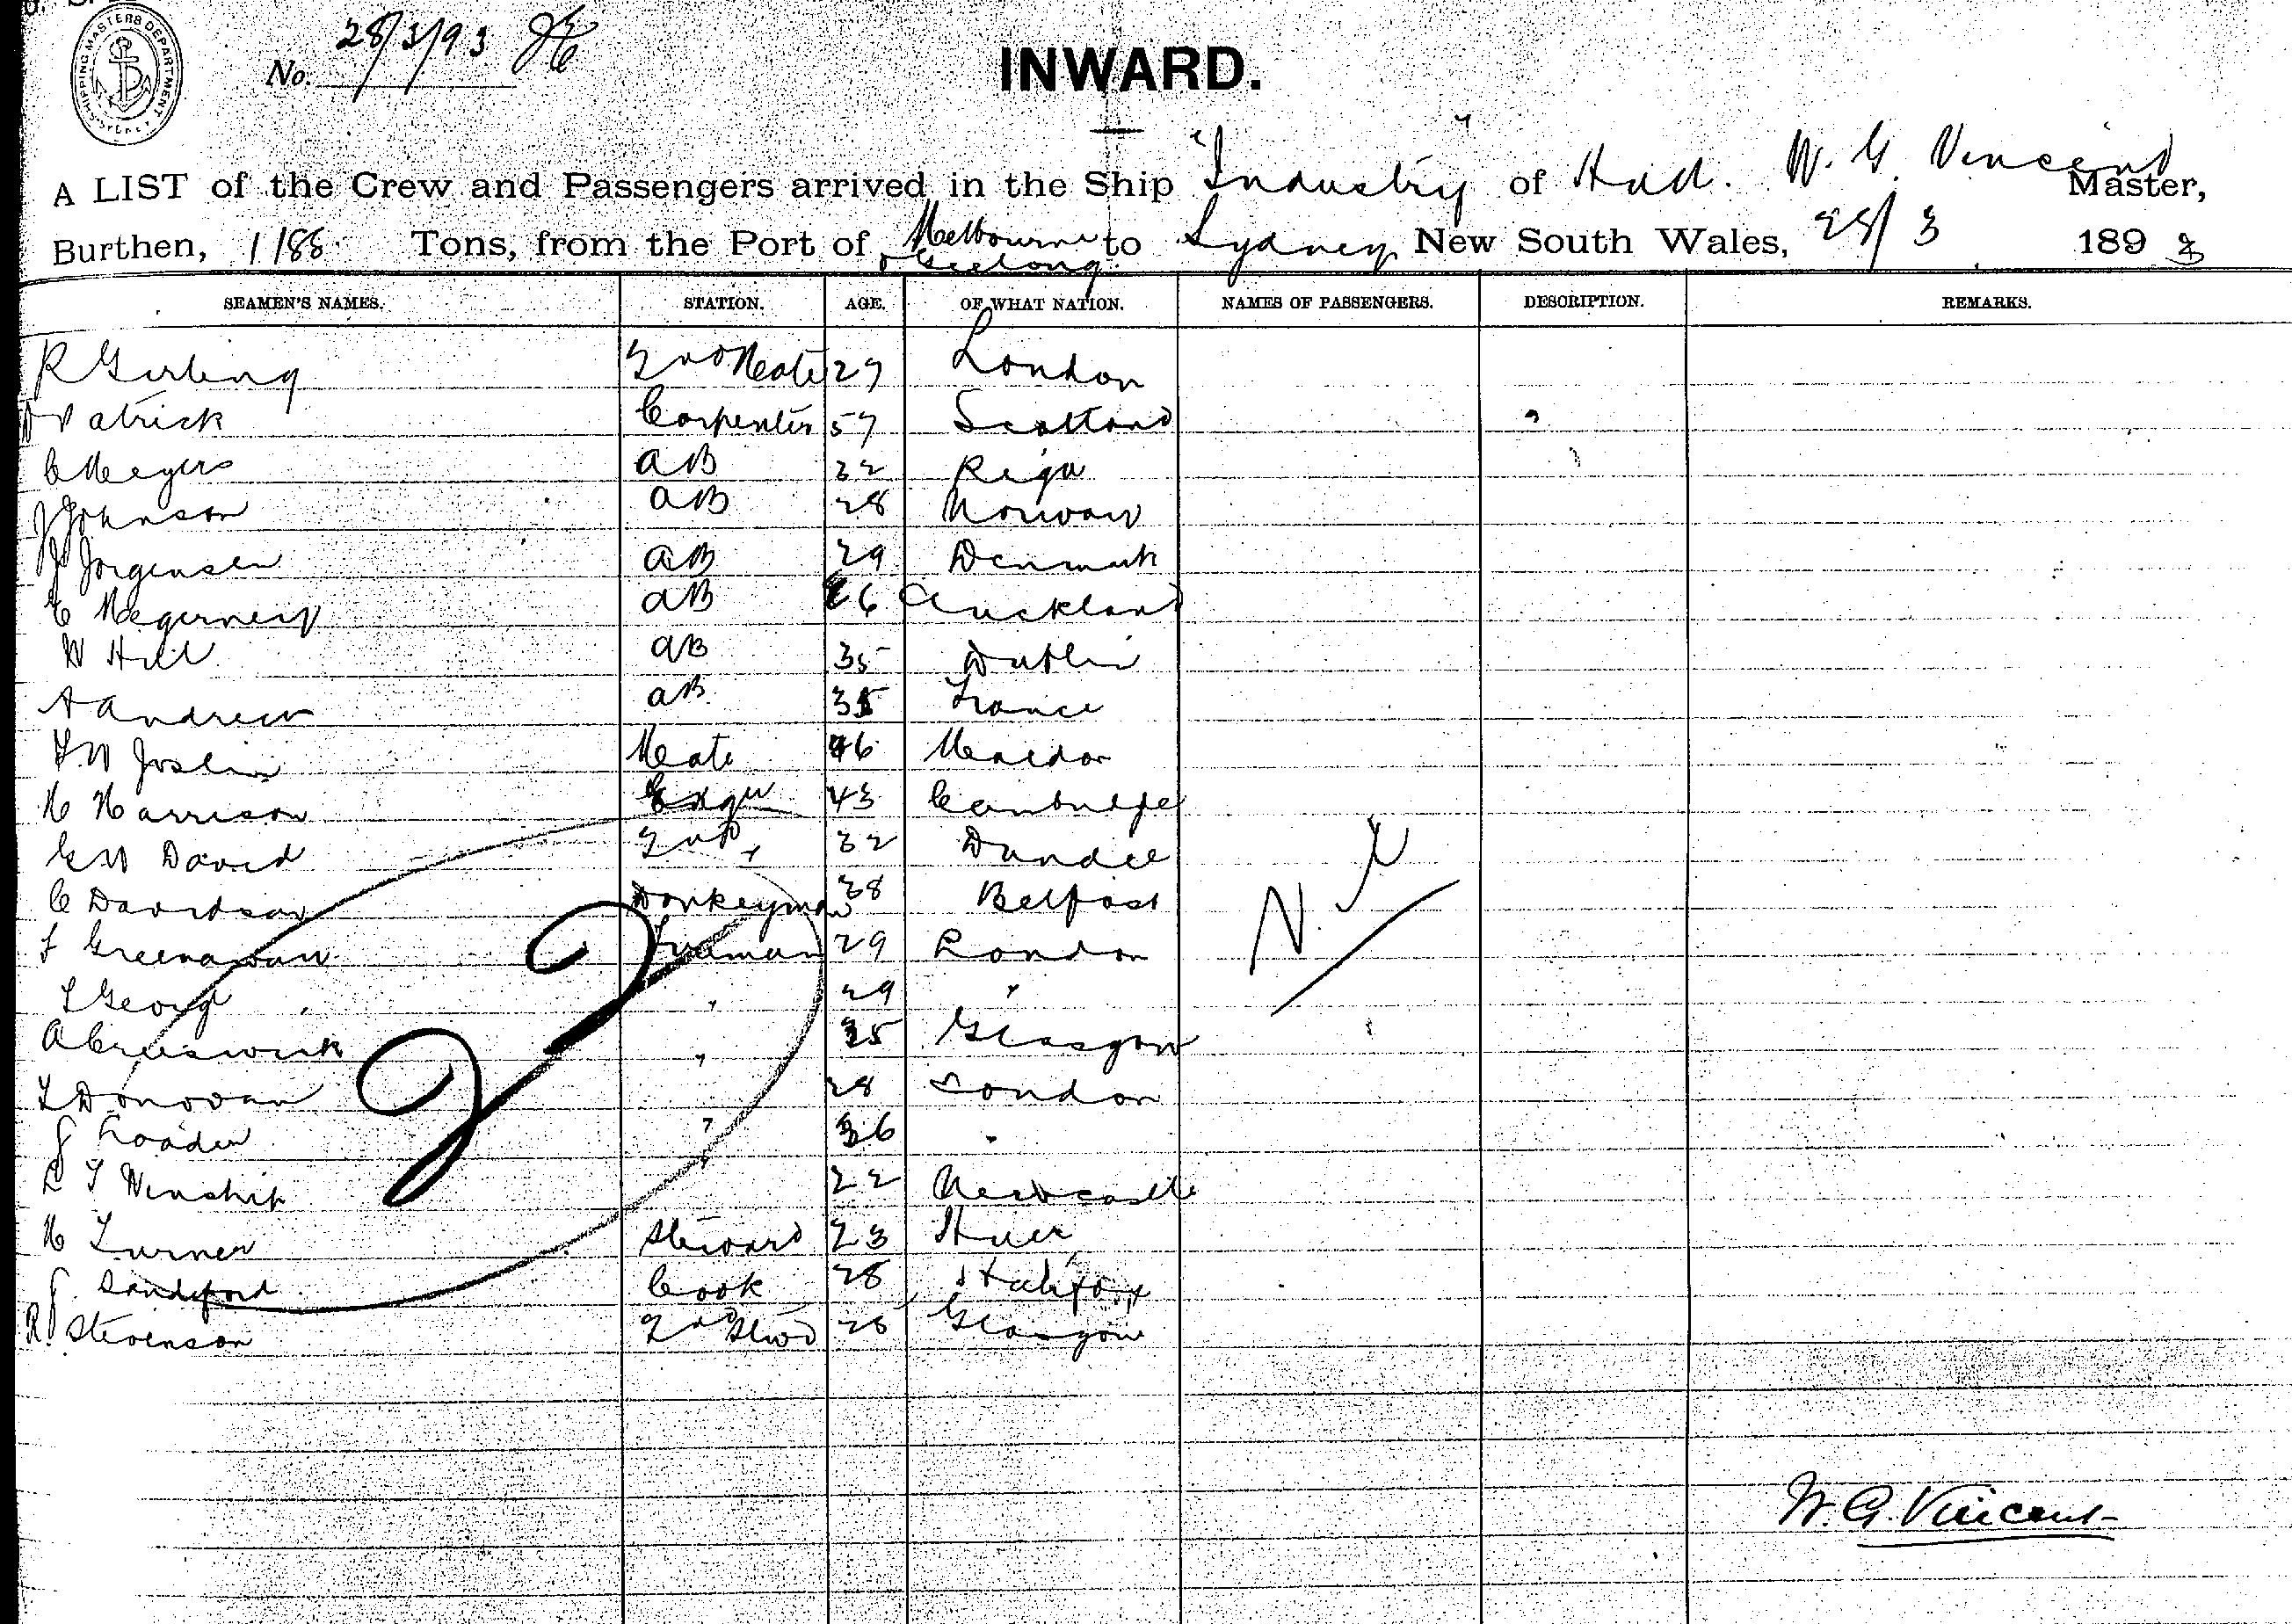 SHIPPING MASTERS DEPARTMENT SYDNEY
No. 28/3/93
INWARD.
A LIST of the Crew and Passengers arrived in the Ship "Industry" of Hull. W. G. Vincent Master,
Burthen, 1188 Tons, from the Port of Melbourne & Geelong to Sydney New South Wales, 28/3 1893
SEAMEN'S NAMES. STATION. AGE. OF WHAT NATION. NAMES OF PASSENGERS. DESCRIPTION. REMARKS.
R Girling 2nd Mate 27 London
Patrick Carpenter 57 Scotland
C Meyers AB 32 Riga
J Johnson AB 28 Norway
J Jorgensen AB 29 Denmark
C AB 26 Auckland
W Hill AB 35 Dublin
A Andrew AB 35 France
F W Joslin Mate 46 Maldon
H Harrison 43 Cambridge
G W David 2nd " 32 Dundee
C Davidson Donkeyman 38 Belfast
F Greenaway Fireman 29 London
T Georg " 29 "
A Cruiswick " 35 Glasgow
T Donovan " 28 London
J " 36 "
R T Winship " 22 Newcastle
H Turner Steward 23 Hull
J Sandiford Cook 28 Halifax
R Stevenson 2nd Stwd 26 Glasgow
N.
W. G. Vincent